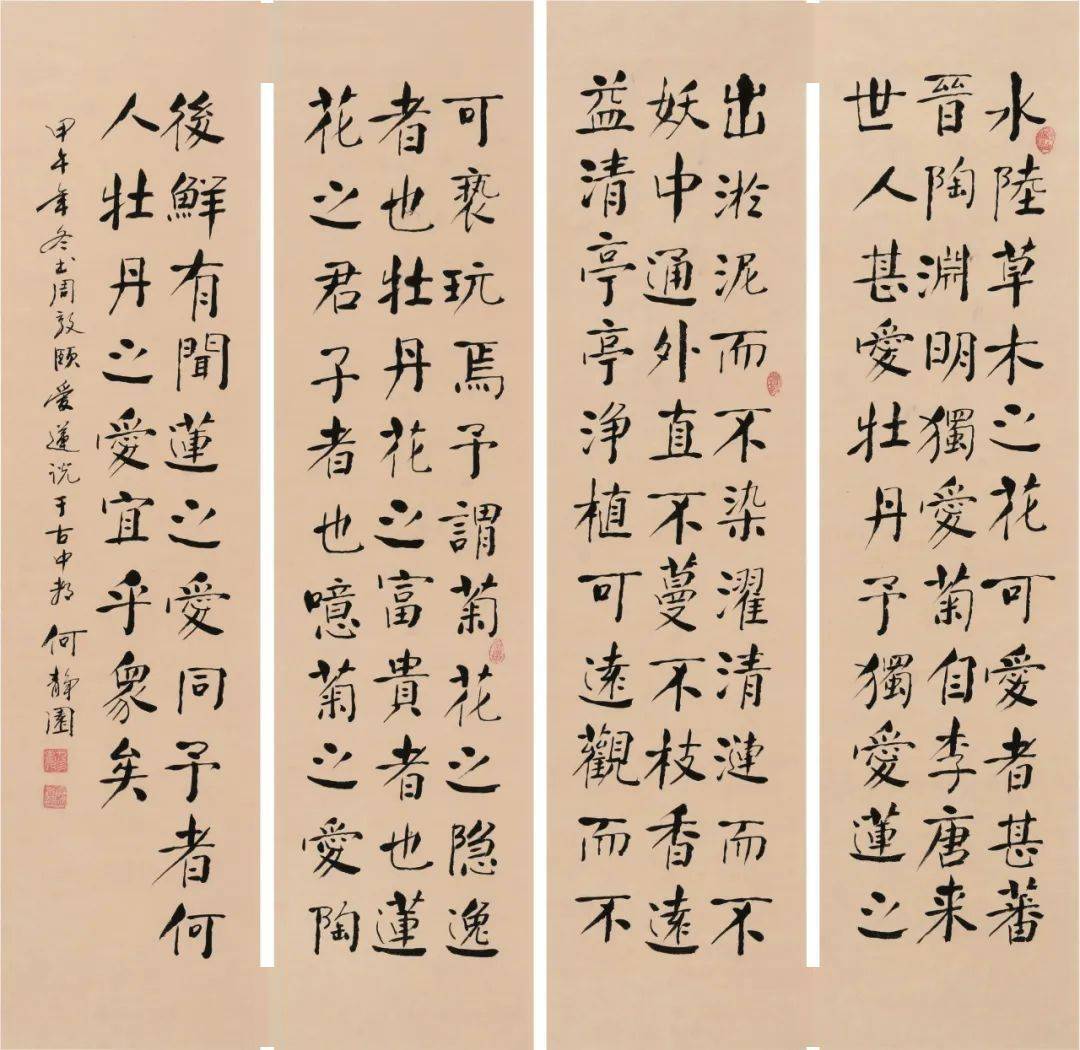 水陸草木之花可愛者甚蕃
晉陶淵明獨愛菊自李唐来
世人甚愛牡丹予獨愛蓮之
出淤泥而不染濯清漣而不
妖中通外直不蔓不枝香遠
益清亭亭浄植可遠觀而不
可褻玩焉予謂菊花之隐逸
者也牡丹花之富貴者也蓮
花之君子者也噫菊之愛陶
後鮮有聞蓮之愛同予者何
人牡丹之愛宜乎衆矣
甲午年冬书周敦頤爱蓮说于古中都何静園